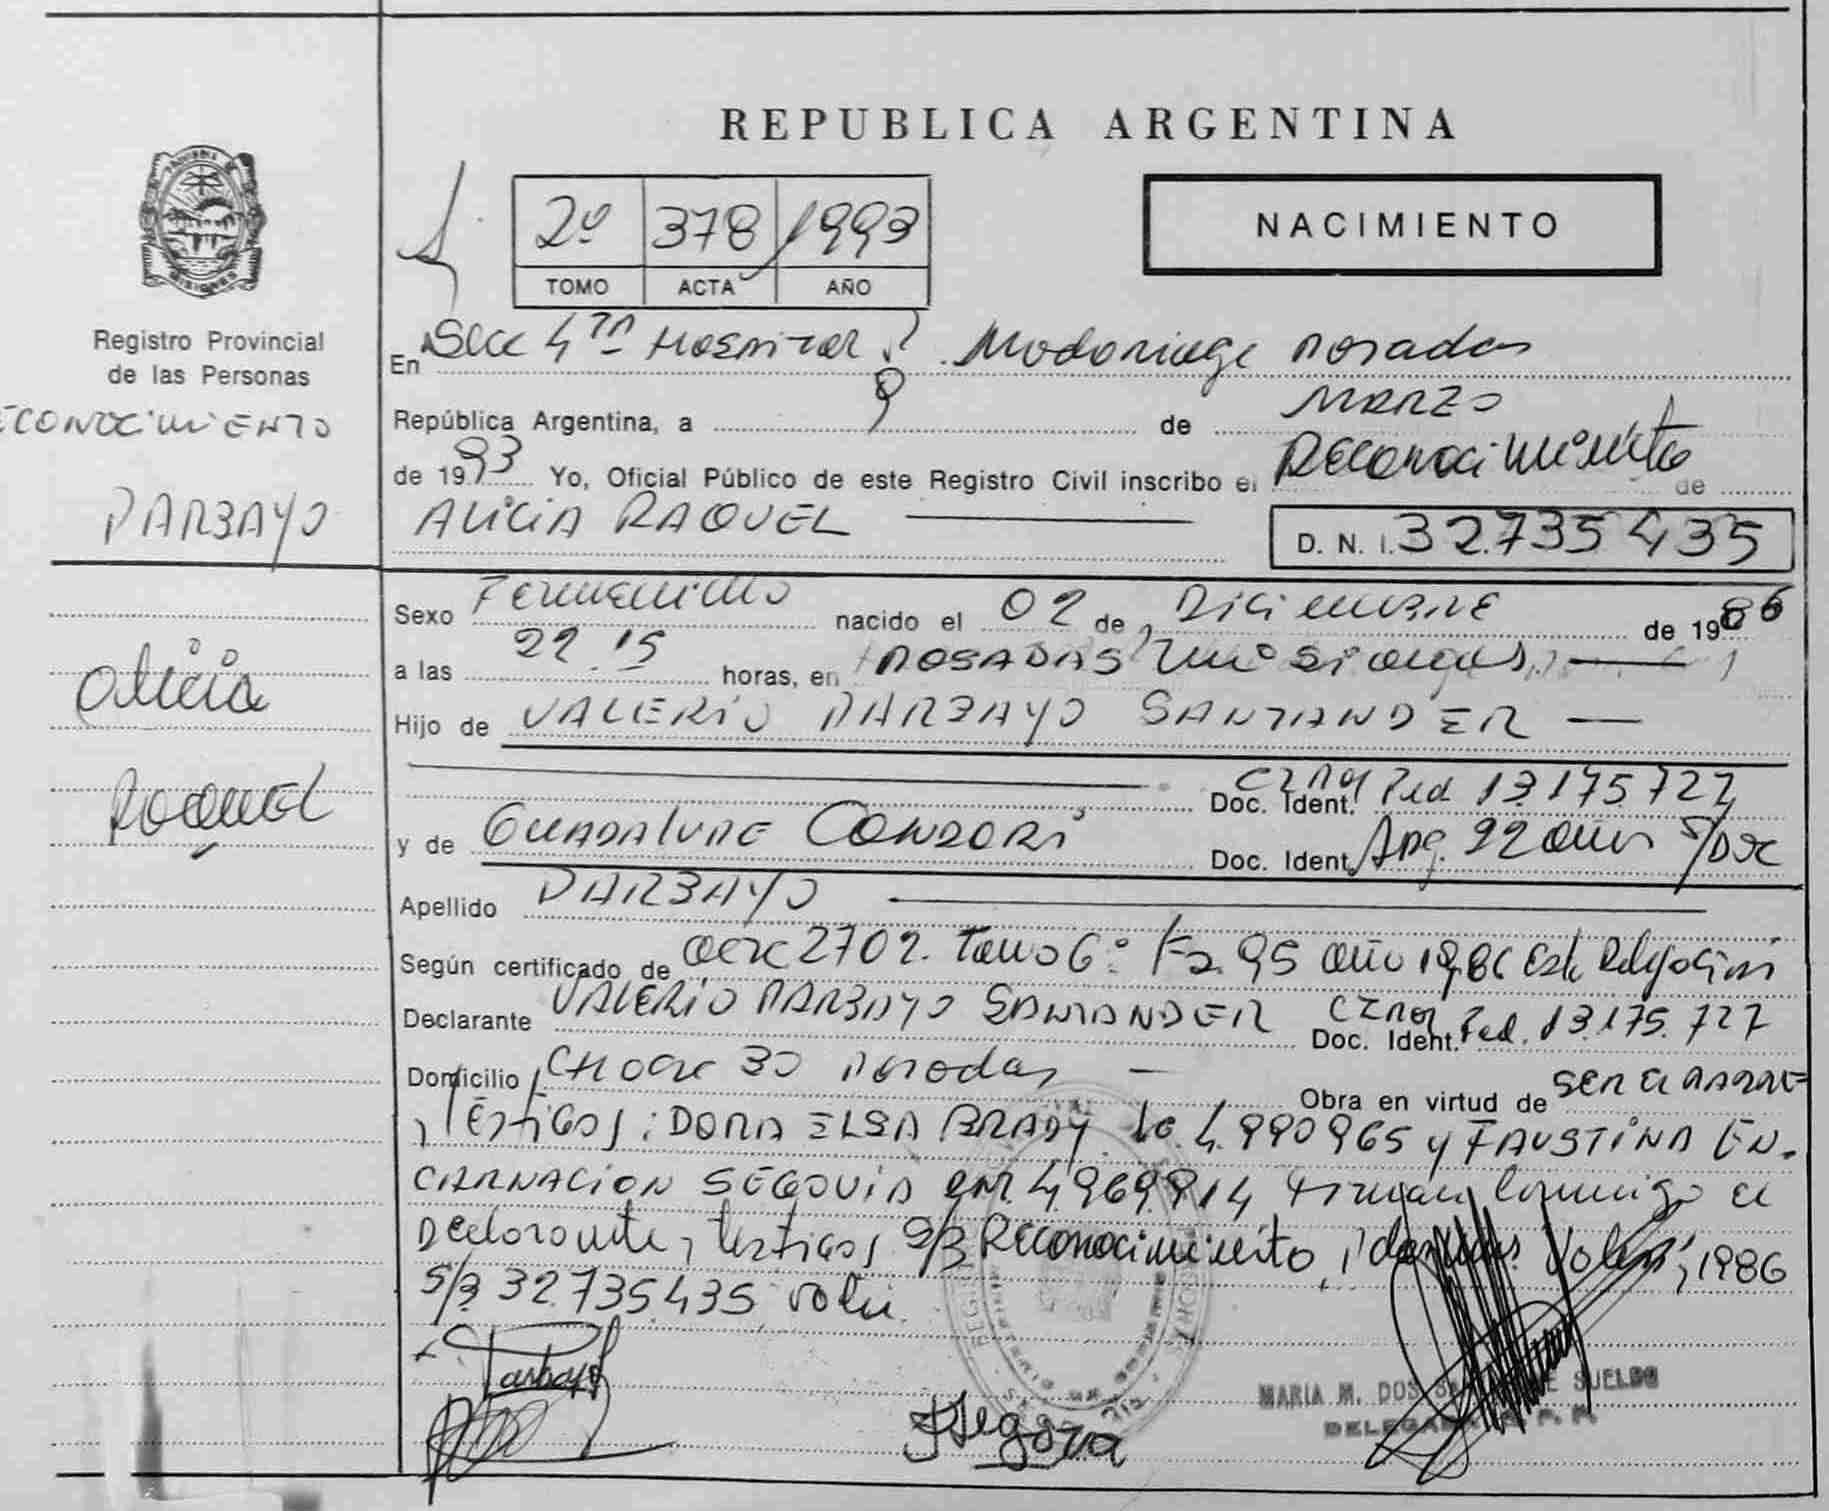 REPUBLICA ARGENTINA
NACIMIENTO
2º 378 1993
TOMO ACTA AÑO
Registro Provincial
de las Personas
RECONOCIMIENTO
PARBAYO
Alicia
Raquel
En Secc 4ta Hospital R. Madariaga Posadas
República Argentina, a 9 de MARZO
de 1993 Yo, Oficial Público de este Registro Civil inscribo el Reconocimiento de
ALICIA RAQUEL
D. N. I. 32.735.435
Sexo Femenino nacido el 02 de Diciembre de 1986
a las 22.15 horas, en POSADAS Misiones
Hijo de VALERIO PARBAYO SANTANDER
Doc. Ident. Ced 13.175.727
y de GUADALUPE CONDORI Doc. Ident. Arg. 22 años S/Doc
Apellido PARBAYO
Según certificado de acta 2702. Tomo 6º Fo. 95 año 1986 esta Delegación
Declarante VALERIO PARBAYO SANTANDER Doc. Ident. Ced. 13.175.727
Domicilio Chacra 30 Posadas Obra en virtud de SER EL PADRE
, Testigos: DORA ELSA BRADY Lc. 4.990965 y FAUSTINA EN-
CARNACION SEGOVIA 4.969.914 Firman conmigo el
Declarante, testigos S/B Reconocimiento, 1986
S/B 32.735.435 vale.
Parbayo
FSegovia
MARIA M. DOS SUELDO
DELEGADA R. P. P.